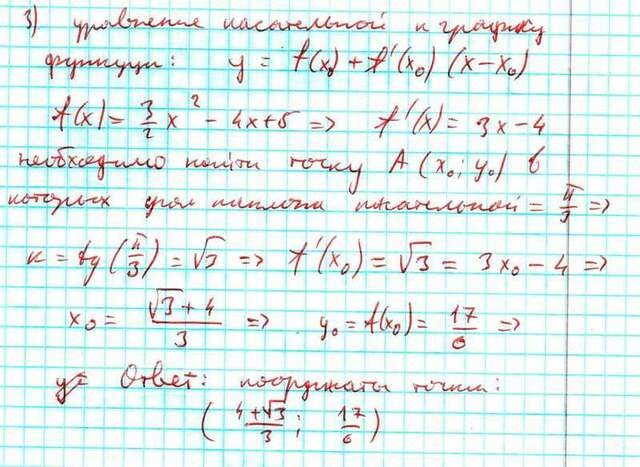 3) уравнение касательной к графику
функции: y = f(x₀) + f'(x₀) (x-x₀)
f(x) = 3/2 x² - 4x+5 => f'(x) = 3x-4
необходимо найти точку A (x₀; y₀) в
которых угол наклона касательной = π/3 =>
k = tg (π/3) = √3 => f'(x₀) = √3 = 3x₀ - 4 =>
x₀ = (√3 + 4)/3 => y₀ = f(x₀) = 17/6 =>
Ответ: координаты точки:
( (4+√3)/3 ; 17/6 )